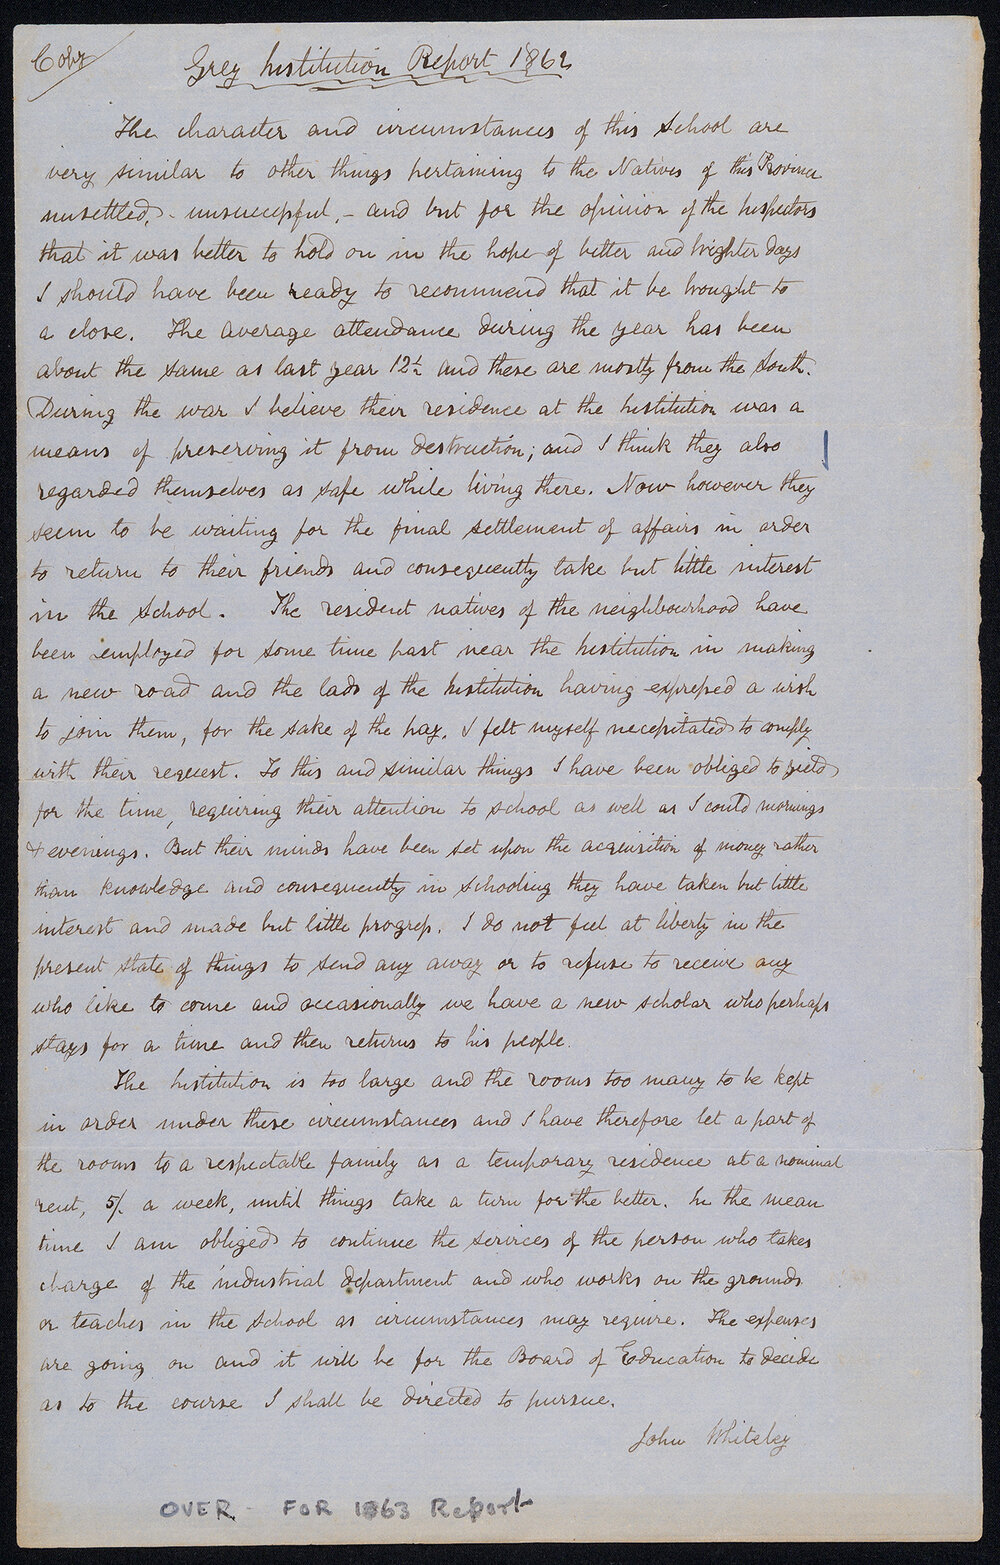 Copy
Grey Institution Report 1862
The character and circumstances of this School are
very similar to other things pertaining to the Natives of this Province
unsettled, - unsuccessful, - and but for the opinion of the Inspectors
that it was better to hold on in the hope of better and brighter days
I should have been ready to recommend that it be brought to
a close. The average attendance during the year has been
about the same as last year 12½ and these are mostly from the South.
During the war I believe their residence at the Institution was a
means of preserving it from destruction; and I think they also
regarded themselves as safe while living there. Now however they
seem to be waiting for the final settlement of affairs in order
to return to their friends and consequently take but little interest
in the School. The resident natives of the neighbourhood have
been employed for some time past near the Institution in making
a new road and the lads of the Institution having expressed a wish
to join them, for the sake of the pay, I felt myself necessitated to comply
with their request. To this and similar things I have been obliged to yield
for the time, requiring their attention to school as well as I could mornings
& evenings. But their minds have been set upon the acquisition of money rather
than knowledge and consequently in schooling they have taken but little
interest and made but little progress. I do not feel at liberty in the
present state of things to send any away or to refuse to receive any
who like to come and occasionally we have a new scholar who perhaps
stays for a time and then returns to his people.
The Institution is too large and the rooms too many to be kept
in order under these circumstances and I have therefore let a part of
the rooms to a respectable family as a temporary residence at a nominal
rent, 5/. a week, until things take a turn for the better. In the mean
time I am obliged to continue the services of the person who takes
charge of the industrial department and who works on the grounds
or teaches in the School as circumstances may require. The expenses
are going on and it will be for the Board of Education to decide
as to the course I shall be directed to pursue.
John Whiteley
OVER - FOR 1863 Report